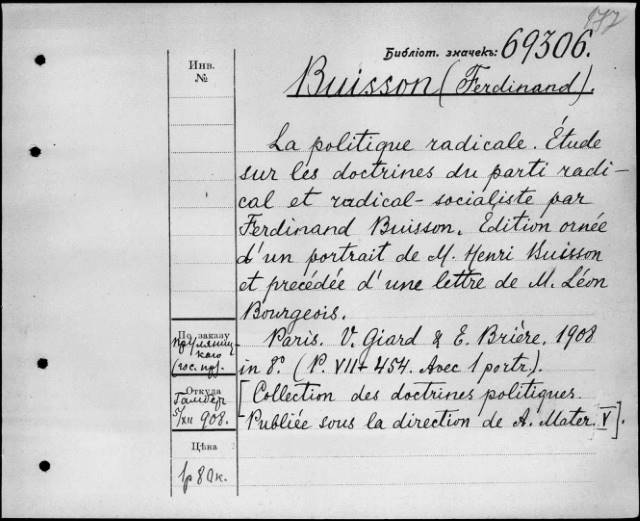 Библіот. значекъ: 69306.
Инв.
№
Buisson (Ferdinand).
La politique radicale. Étude
sur les doctrines du parti radi-
cal et radical-socialiste par
Ferdinand Buisson. Edition ornée
d'un portrait de M. Henri Buisson
et précédée d'une lettre de M. Léon
Bourgeois.
Paris. V. Giard & E. Brière. 1908
in 8° (P. VII + 454. Avec 1 portr.).
[Collection des doctrines politiques.
Publiée sous la direction de A. Mater. V].
По заказу
(гос. пр).
Откуда
5/XII 908.
Цѣна
1р 80к.